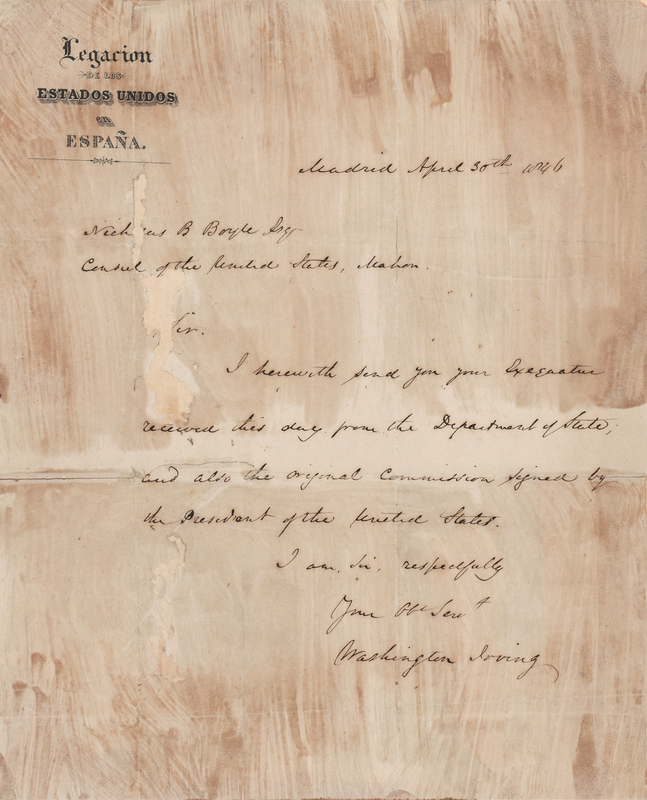 Legacion
DE LOS
ESTADOS UNIDOS
EN
ESPAÑA.
Madrid April 30th 1846
B Boyle Esqr
Consul of the United States, Mahon.
Sir.
I herewith send you your Exequatur
received this day from the Department of State,
and also the original Commission signed by
the President of the United States.
I am, Sir, respectfully
Your Obt Servt
Washington Irving